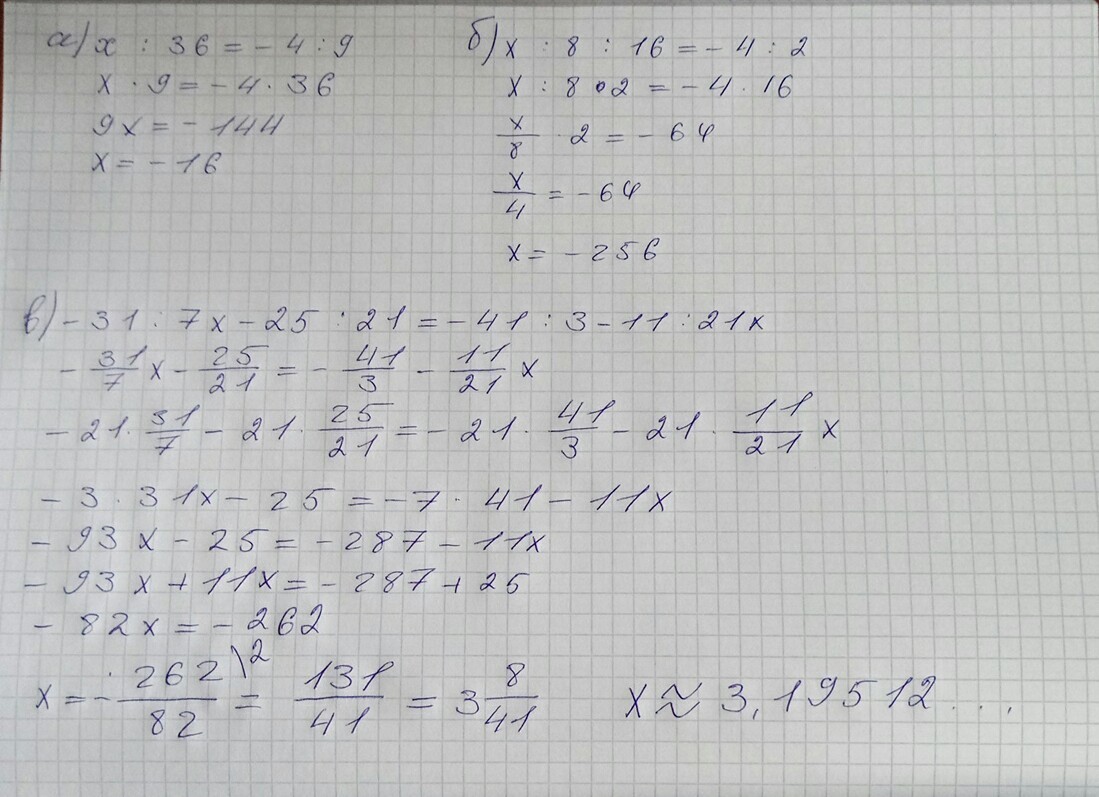 а) x : 36 = - 4 : 9
x · 9 = - 4 · 36
9x = - 144
x = - 16
б) x : 8 : 16 = - 4 : 2
x : 8 · 2 = - 4 · 16
x/8 · 2 = - 64
x/4 = - 64
x = - 256
в) - 31 : 7x - 25 : 21 = - 41 : 3 - 11 : 21x
- 31/7 x - 25/21 = - 41/3 - 11/21 x
- 21 · 31/7 - 21 · 25/21 = - 21 · 41/3 - 21 · 11/21 x
- 3 · 31x - 25 = - 7 · 41 - 11x
- 93x - 25 = - 287 - 11x
- 93x + 11x = - 287 + 25
- 82x = - 262
x = - 262\2/82 = 131/41 = 3 8/41 x ≈ 3,19512...